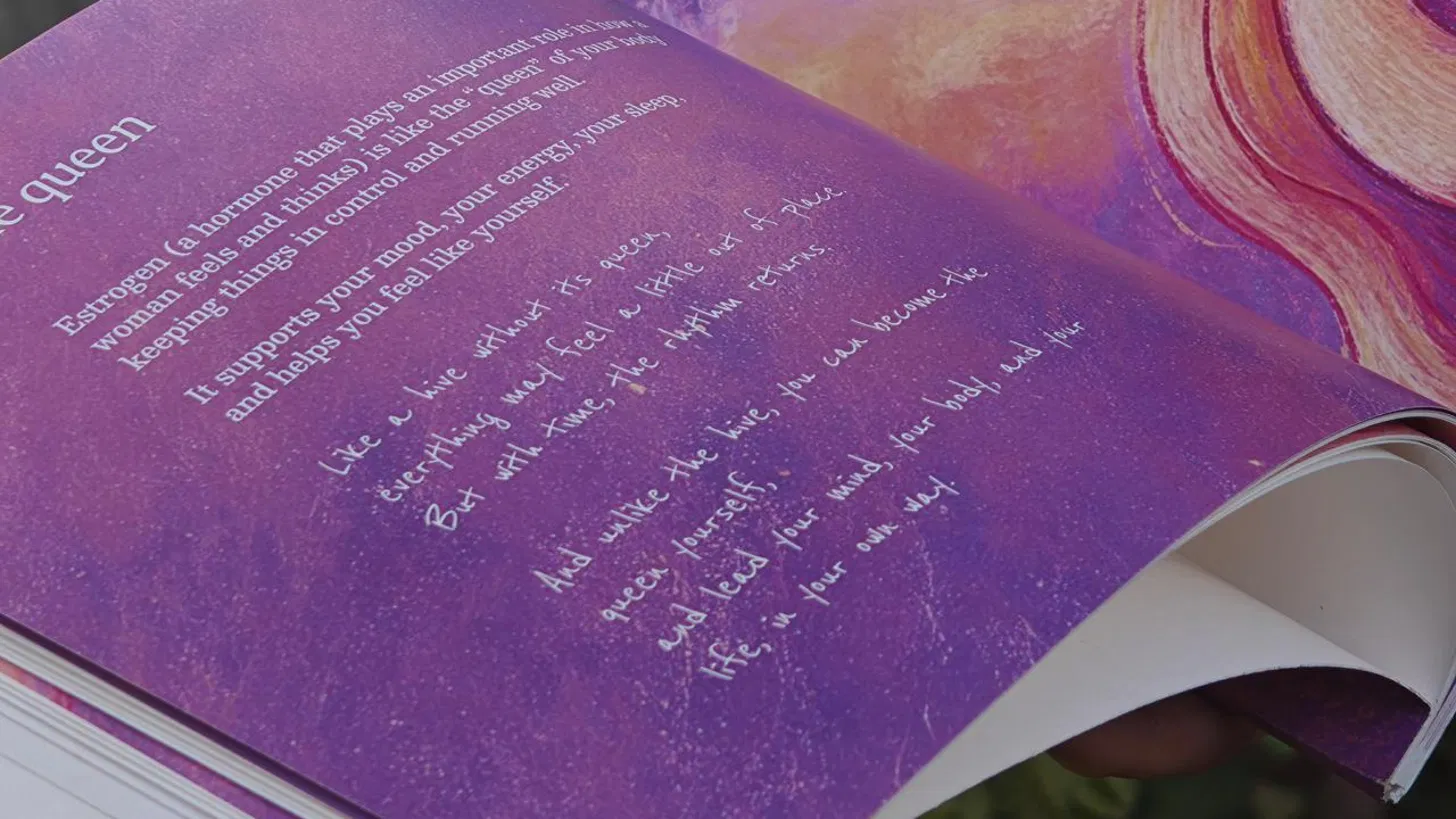 queen
Estrogen (a hormone that plays an important role in how a
woman feels and thinks) is like the "queen" of your body
keeping things in control and running well.
It supports your mood, your energy, your sleep,
and helps you feel like yourself.
Like a hive without its queen,
everything may feel a little out of place.
But with time, the rhythm returns.
And unlike the hive, you can become the
queen yourself,
and lead your mind, your body, and your
life, in your own way.